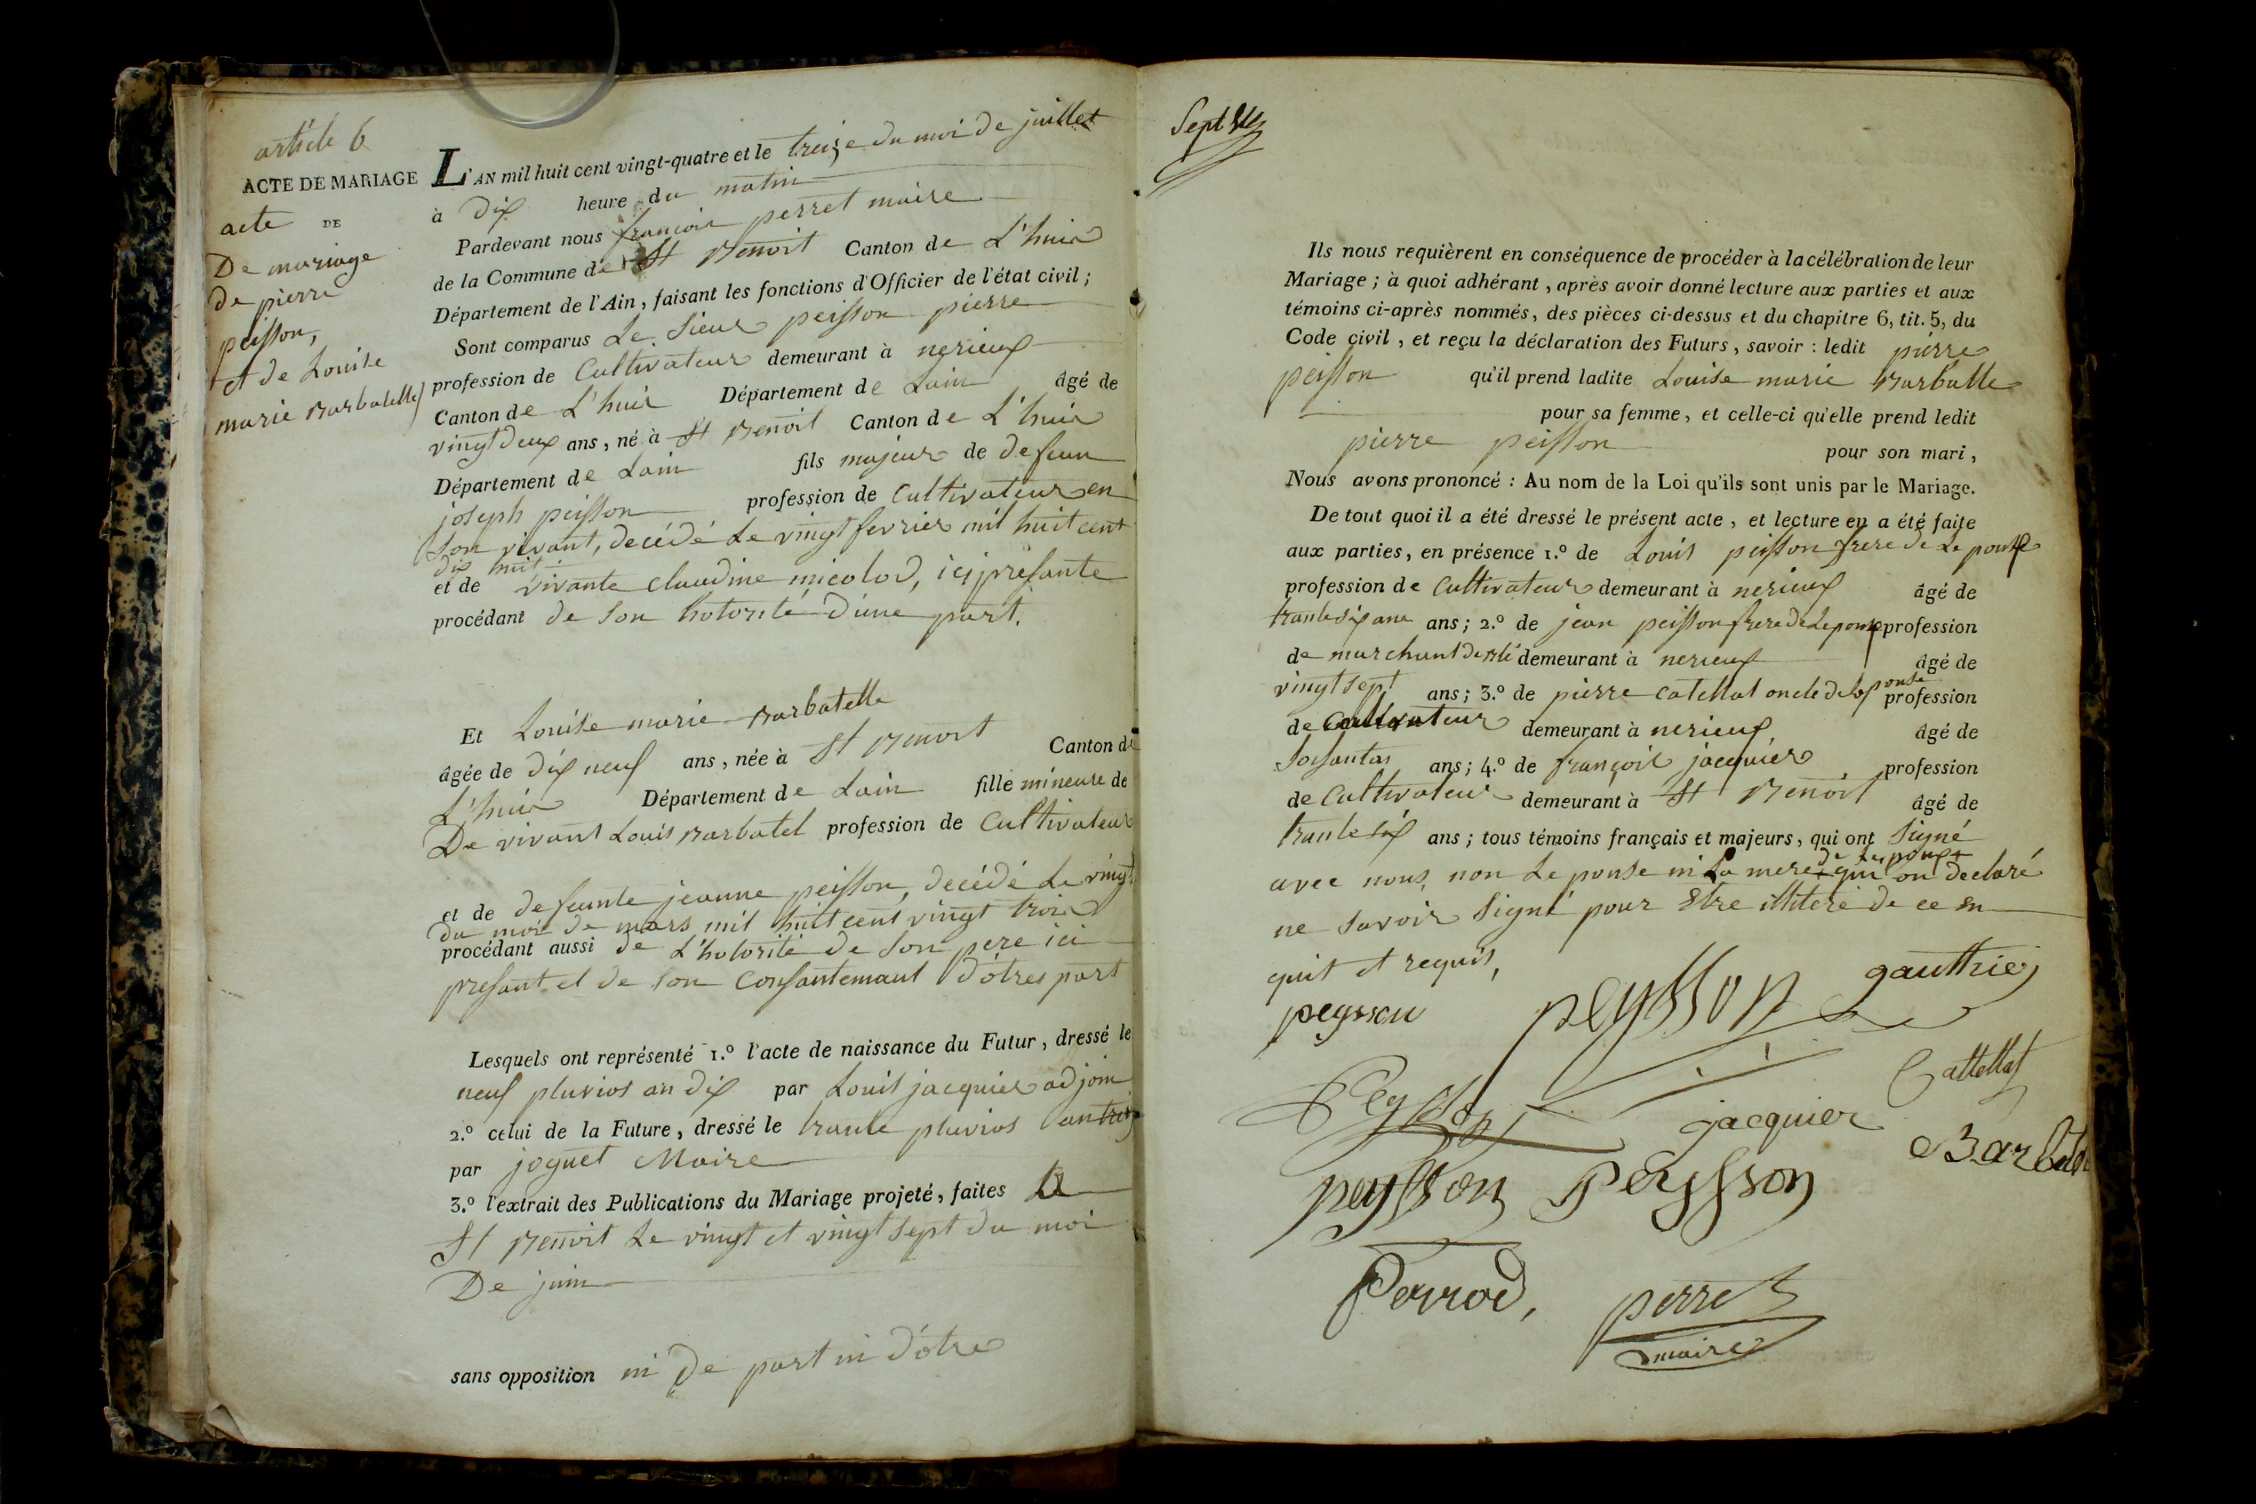 article 6
ACTE DE MARIAGE
acte DE
De mariage
De pierre
peisson,
et de Louise
marie Barbatelle
L'AN mil huit cent vingt-quatre et le treize du moi de juillet
à dix heure du matin
Pardevant nous françois perret maire
de la Commune de St Benoit Canton de L'huis
Département de l'Ain, faisant les fonctions d'Officier de l'état civil;
Sont comparus Le Sieur peisson pierre
profession de Cultivateur demeurant à nerieux
Canton de L'huis Département de Lain âgé de
vingt deux ans, né à St Benoit Canton de L'huis
Département de Lain fils majeur de defeun
joseph peisson profession de Cultivateur en
son vivant, decédé Le vingt fevrier mil huit cent
dix huit
et de vivante claudine micolod, ici presante
procédant de son hotorité d'une part.
Et Louise marie Barbatelle
âgée de dix neuf ans, née à St Benoit Canton de
L'huis Département de Lain fille mineure de
De vivant Louis Barbatel profession de Cultivateur
et de defeunte jeanne peisson, decédé Le vingt
du moi de mars mil huit cent vingt trois
procédant aussi de L'hotorité de son pere ici
presant et de son Consantemant d'ôtres part
Lesquels ont représenté 1.° l'acte de naissance du Futur, dressé le
neuf pluvios an dix par Louis jacquier adjoin
2.° celui de la Future, dressé le trante pluvios an treize
par joguet Maire
3.° l'extrait des Publications du Mariage projeté, faites à
St Benoit Le vingt et vingt sept du moi
De juin
sans opposition ni De part ni d'ôtre
Sept
Ils nous requièrent en conséquence de procéder à la célébration de leur
Mariage; à quoi adhérant, après avoir donné lecture aux parties et aux
témoins ci-après nommés, des pièces ci-dessus et du chapitre 6, tit. 5, du
Code civil, et reçu la déclaration des Futurs, savoir: ledit pierre
peisson qu'il prend ladite Louise marie Barbatle
pour sa femme, et celle-ci qu'elle prend ledit
pierre peisson pour son mari,
Nous avons prononcé: Au nom de la Loi qu'ils sont unis par le Mariage.
De tout quoi il a été dressé le présent acte, et lecture en a été faite
aux parties, en présence 1.° de Louis peisson frere de Le pouse
profession de Cultivateur demeurant à nerieux âgé de
trante six ans ans; 2.° de jean peisson frere de Lepouse profession
de marchant de Blé demeurant à nerieux âgé de
vingt sept ans; 3.° de pierre catellat oncle de Lepouse profession
de Cultivateur demeurant à nerieux, âgé de
Soisantas ans; 4.° de françois jacquier profession
de Cultivateur demeurant à St Benoit âgé de
trante six ans; tous témoins français et majeurs, qui ont Signé
avec nous, non Le pouse ni La mere de Lepouse qui on declaré
ne savoir Signé pour Estre illiteré de ce en
quit et requis,
peysson peysson gauthier
Peysson Cattellat
jacquier Barbatel
peysson Peysson
Perrod, perret
maire